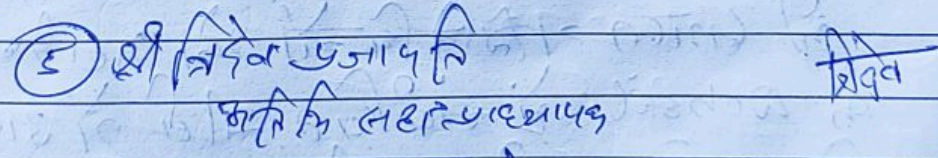 ६ श्री त्रिदेव प्रजापति त्रिदेव
अतिथि सहा० प्राध्यापक